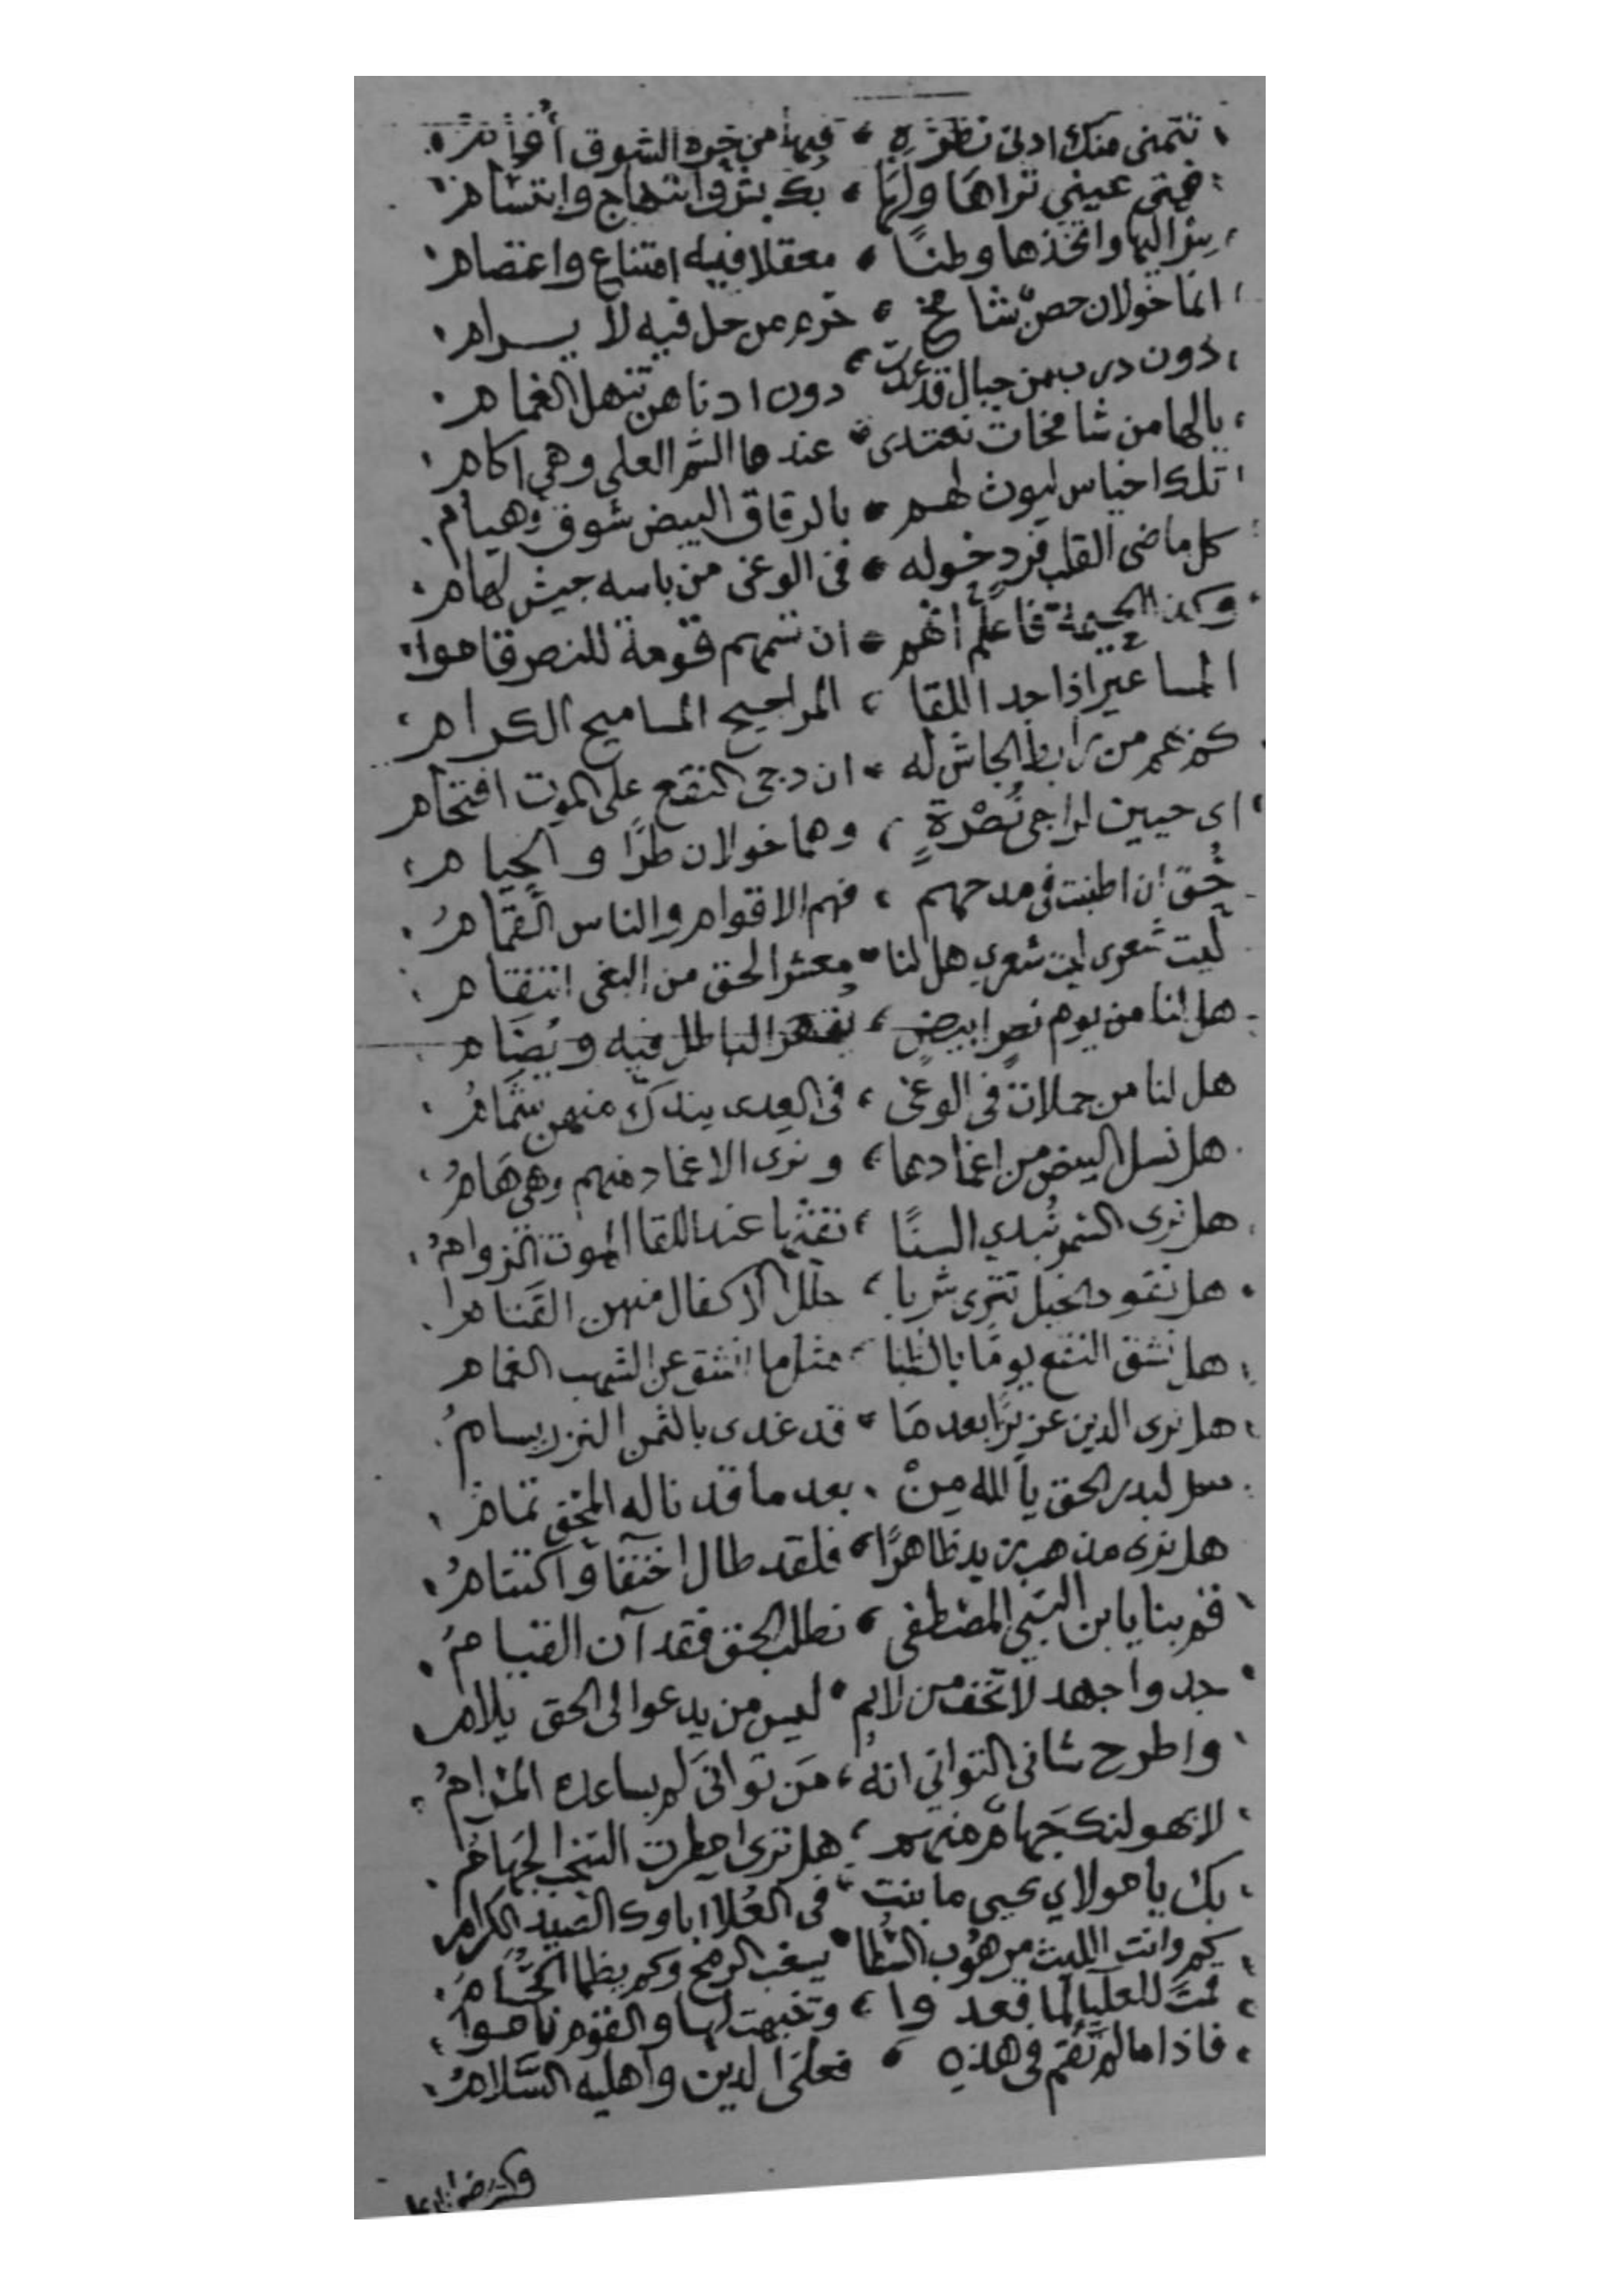 نتمنى منك ادنى نظرة فبها من حره الشوق
فمتى عيني تراها ولها بك بشر وابتهاج وابتسام
سر اليها واتخذها وطنًا معقلا فيه امتناع واعتصام
انما خولان حصن شامخ حرم من حل فيه لا يرام
دون درب من جبال قد علت دون ادناهن تنهل الغمام
يالها من شامخات تغتدى عندها الشم العلى وهي اكام
تلك اخياس ليوث لهم بالرقاق البيض شوق وهيام
كل ماضى القلب فرد خوله فى الوغى من باسه جيش لهام
وكذا الحيمة فاعلم انهم ان تسمهم قومة للنصر قاموا
المساعير اذا جد اللقا المراجيح المساميح الكرام
كم نهم من رابط الجاش له ان دجى النقع على الموت اقتحام
اى حيين لراجى نُصْرةٍ وهما خولان طرًا والحيام
حُق ان اطنبت فى مدحهم فهم الاقوام والناس القمام
ليت شعرى ليت شعري هل لنا معشر الحق من البغى انتقام
هل لنا من يوم نصر ابيض يقهر الباطل فيه ويُضام
هل لنا من حملات فى الوغى فى العدى يندك منهن شمام
هل نسل البيض من اغمادها ونرى الاغماد منهم وهي هام
هل نرى السمر تُبدي السنًا نفثها عند اللقا الموت الزوام
هل نقود الخيل تترى شزبا حلل الاكفال منهن القتام
هل نشق النقع يومًا بالظبا مثل ما انشق عن الشهب الغمام
هل نرى الدين عزيزًا بعدما قد غدى بالثمن النزر يسام
هل لبدر الحق يا لله مِنْ بعد ما قد ناله المحق تمام
هل نرى مذهب زيد ظاهرًا فلقد طال اختفا واكتتام
قم بنا يابن النبي المصطفى نطلب الحق فقد آن القيام
جد واجهد لا تخف من لايم ليس من يدعوا الى الحق يلام
واطرح شانى التوانى انهُ من توانى لم يساعده المرام
لا يهولنك جهام منهم هل ترى امطرت السحب الجهام
بك يا مولاي يحيى ما بنت فى العُلا اباوك الصيد الكرام
كم وانت الليث مرهوب السُطا يسغب الرمح وكم يظما الحسام
قمتَ للعليا لما قعدوا وتنبهت لها والقوم ناموا
فاذا ما لم تَقُم فى هذه فعلى الدين واهليه السَّلام